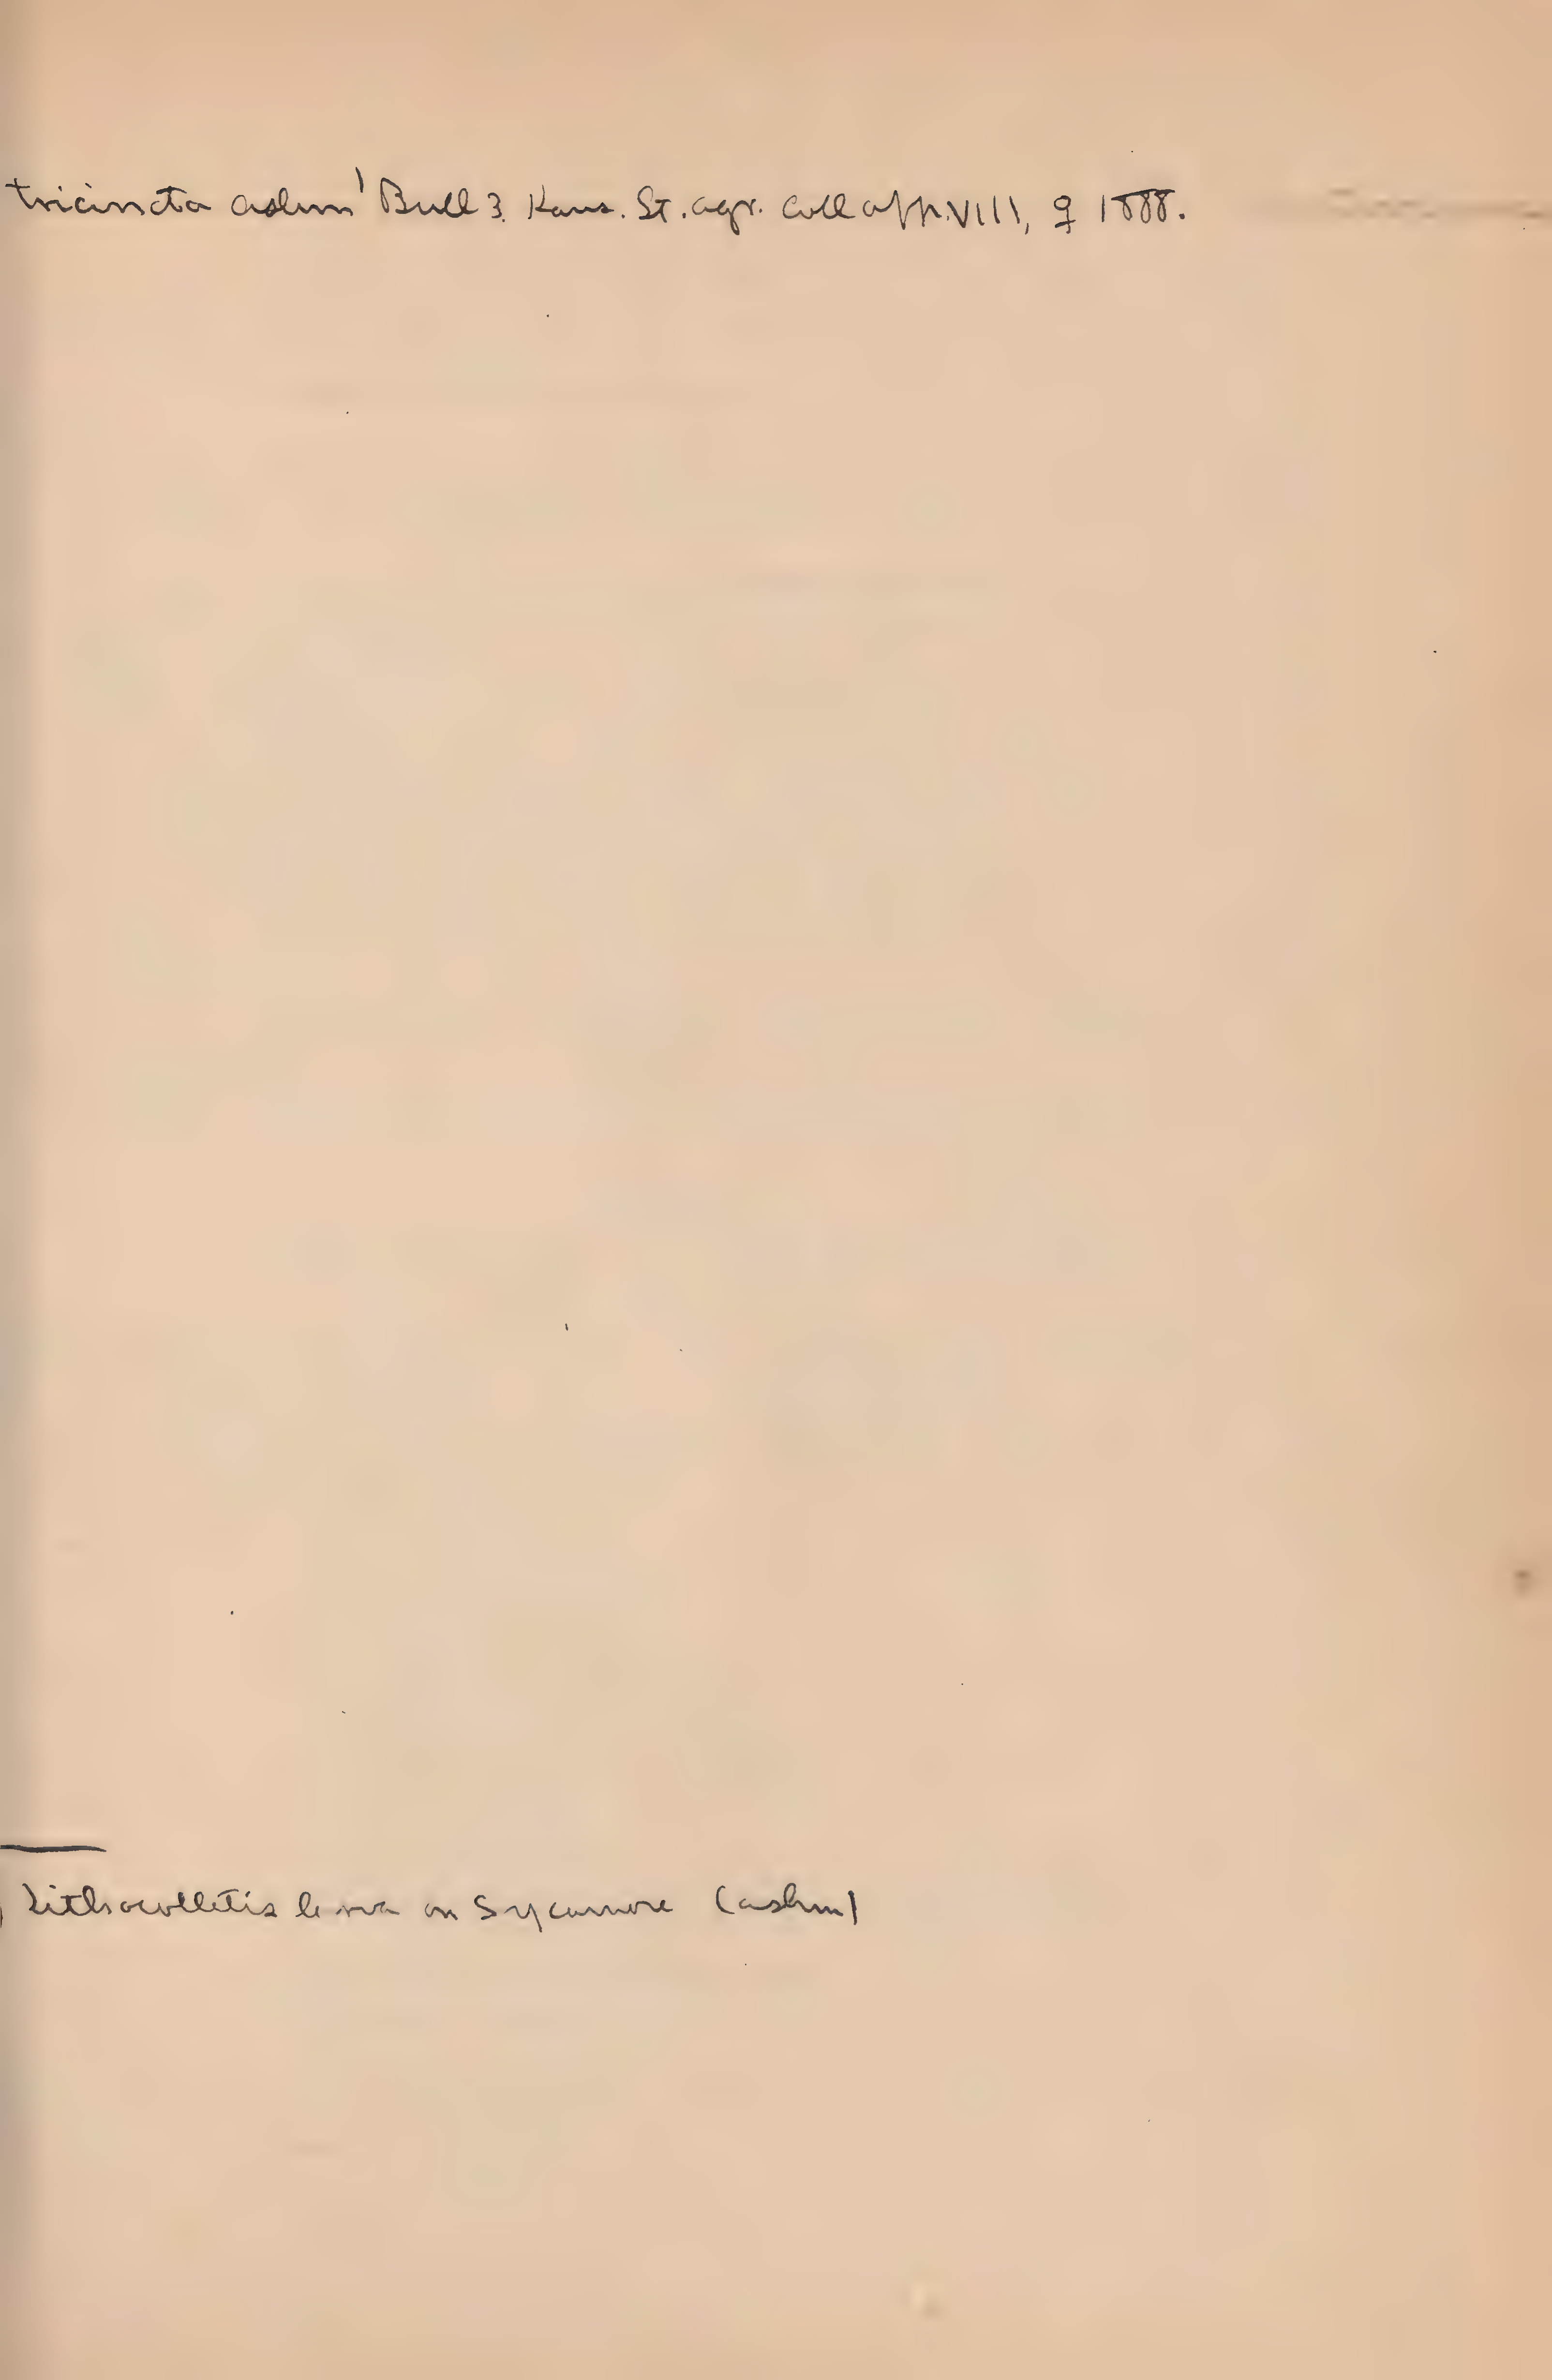 tricincta ashm' Bull 3. Kans. St. agr. Coll app. VIII, ♀ 1888.
1 Lithocolletis larva on Sycamore (ashm)